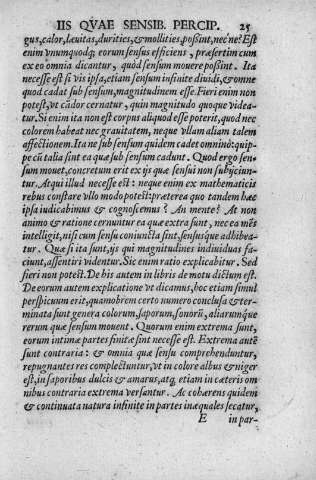 IIS QVAE SENSIB. PERCIP. 25
gus, calor, lævitas, durities, & mollities, possint, nec'ne? Est
enim vnumquodq; eorum sensus efficiens, præsertim cum
ex eo omnia dicantur, quòd sensum mouere possint. Ita
necesse est si vis ipsa, etiam sensum infinite diuidi, & omne
quod cadat sub sensum, magnitudinem esse. Fieri enim non
potest, vt cādor cernatur, quin magnitudo quoque videa-
tur. Si enim ita non est corpus aliquod esse poterit, quod nec
colorem habeat nec grauitatem, neque vllum aliam talem
affectionem. Ita ne sub sensum quidem cadet omnino: quip-
pe cū talia sint ea quæ sub sensum cadunt. Quod ergo sen-
sum mouet, concretum erit ex ijs quæ sensui non subijciun-
tur. Atqui illud necesse est: neque enim ex mathematicis
rebus constare vllo modo potest: præterea quo tandem hæc
ipsa iudicabimus & cognoscemus? An mente? At non
animo & ratione cernuntur ea quæ extra sunt, nec ea mēs
intelligit, nisi cum sensu coniuncta sint, sensusque adhibea-
tur. Quæ si ita sunt, ijs qui magnitudines indiuiduas fa-
ciunt, assentiri videntur. Sic enim ratio explicabitur. Sed
fieri non potest. De his autem in libris de motu dictum est.
De eorum autem explicatione vt dicamus, hoc etiam simul
perspicuum erit, quamobrem certo numero conclusa & ter-
minata sunt genera colorum, saporum, sonorū, aliarumque
rerum quæ sensum mouent. Quorum enim extrema sunt,
eorum intimæ partes finitæ sint necesse est. Extrema autē
sunt contraria: & omnia quæ sensu comprehenduntur,
repugnantes res complectuntur, vt in colore albus & niger
est, in saporibus dulcis & amarus, atq; etiam in cæteris om
nibus contraria extrema versantur. Ac cohærens quidem
& continuata natura infinite in partes inæquales secatur,
E in par-